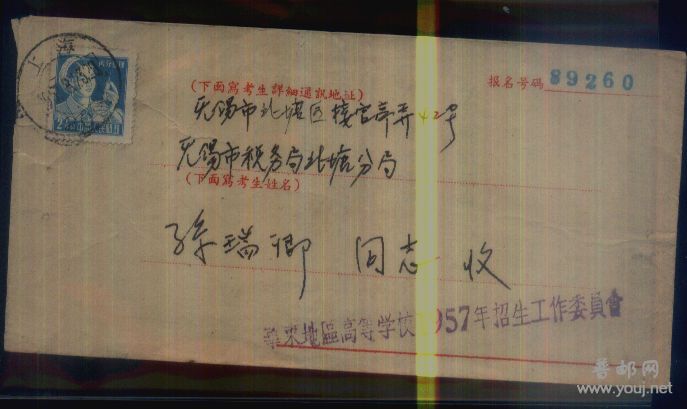 上海
(下面寫考生詳細通訊地址)
报名号码 89260
无锡市北塘区接官亭弄42号
无锡市税务局北塘分局
(下面寫考生姓名)
孫瑞卿 同志 收
華東地區高等学校1957年招生工作委員會
普邮网
www.youj.net